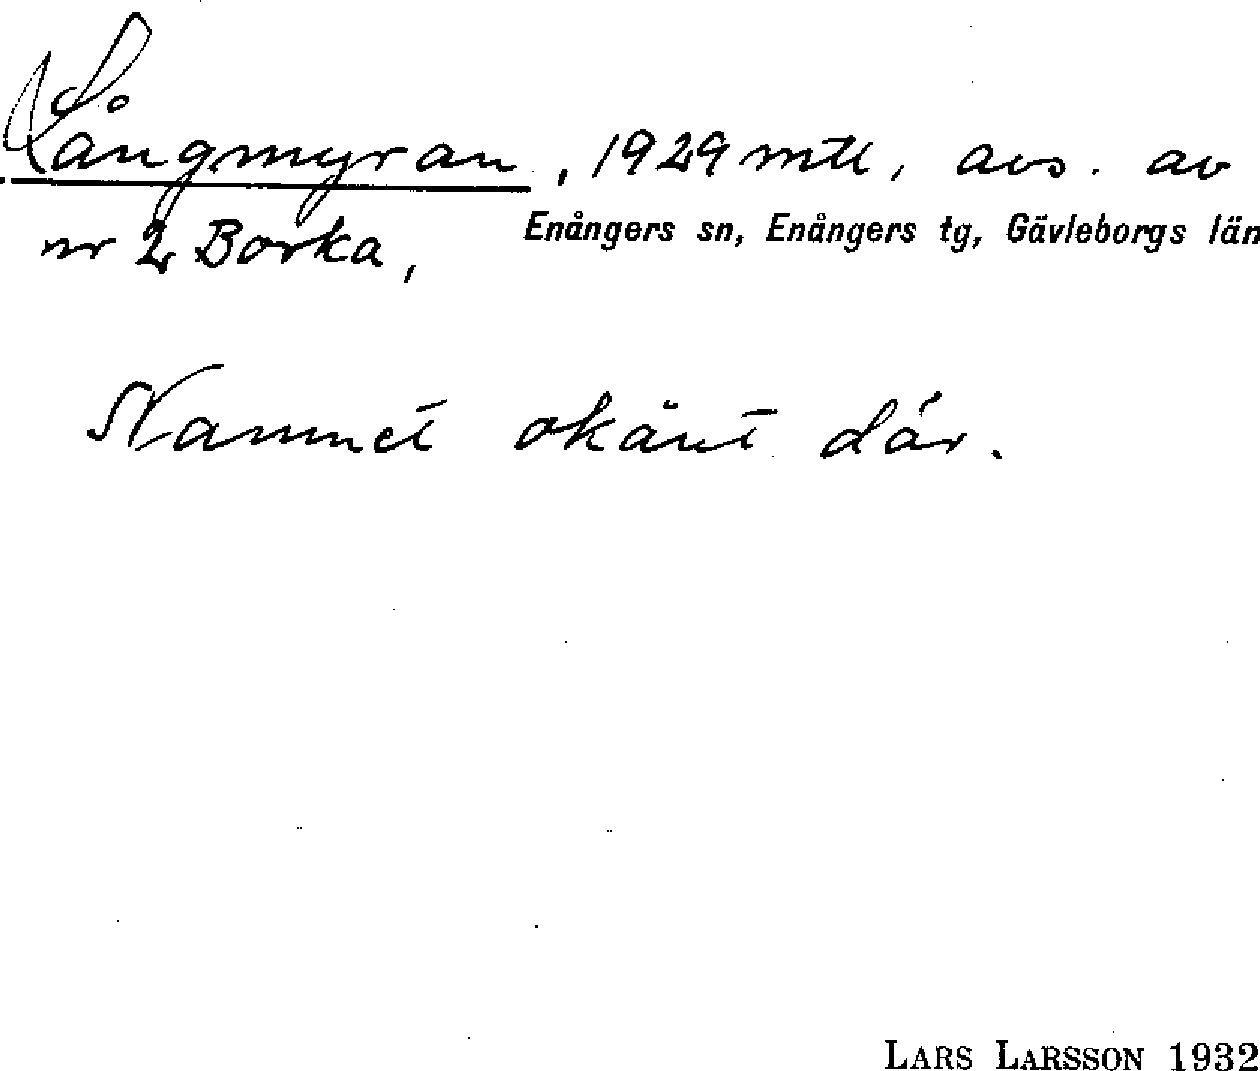 Långmyran, 1929 mtl, avs. av
nr 2 Borka, Enångers sn, Enångers tg, Gävleborgs län
Namnet okänt där.
LARS LARSSON 1932